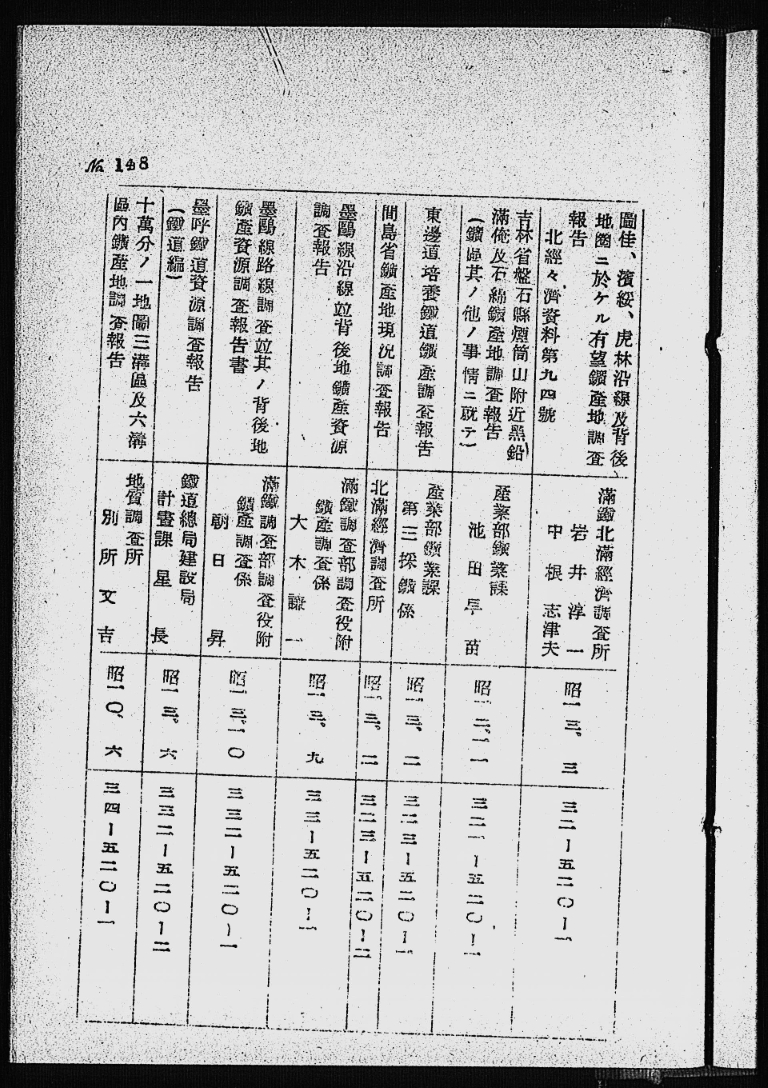 No. 148
圖佳、濱綏、虎林沿線及背後
地圈ニ於ケル有望鑛產地調查
報告
北經々濟資料第九四號
滿鐵北滿經濟調査所
岩井淳一
中根志津夫
昭一三、三
三二一五二〇一一
吉林省盤石縣煙筒山附近黑鉛
滿俺及石綿鑛產地調查報告
(鑛區其ノ他ノ事情ニ就テ)
產業部鑛業課
池田早苗
昭一二、一一
三二一一五二〇一一
東邊道培養鐵道鑛產調查報告
產業部鑛業課
第三採鑛係
昭一三、二
三二三一五二〇一一
間島省鑛產地現況調查報告
北滿經濟調査所
昭一三、二
三二三一五二〇一二
墨鷗線沿線竝背後地鑛產資源
調查報告
滿鐵調査部調査役附
鑛產調査係
大木謙一
昭一三、九
三三一五二〇一一
墨鷗線路線調查竝其ノ背後地
鑛產資源調查報告書
滿鐵調査部調査役附
鑛產調査係
朝日昇
昭一三、一〇
三三二一五二〇一一
墨呼鐵道資源調查報告
(鐵道編)
鐵道總局建設局
計畫課星長
昭一三、六
三三二一五二〇一二
十萬分ノ一地圖三溝區及六溝
區內鑛產地調查報告
地質調査所
別所文吉
昭一〇、六
三四一五二〇一一